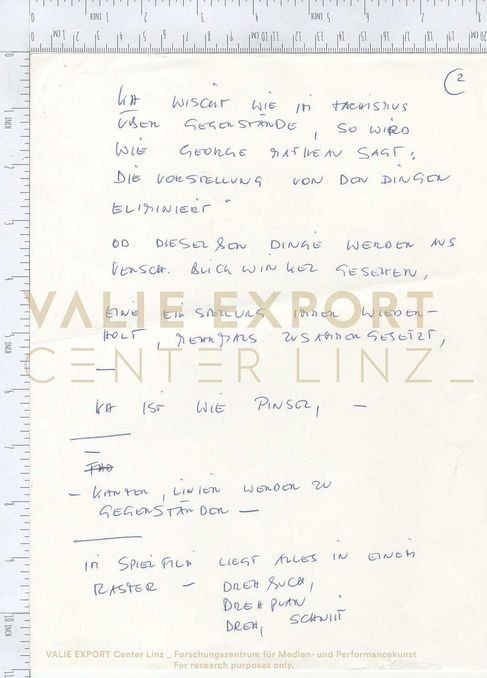 2
KA WISCHT WIE IM TACHISMUS
ÜBER GEGENSTÄNDE, SO WIRD
WIE GEORGE MATHEAU SAGT:
DIE VORSTELLUNG VON DEN DINGEN
ELIMINIERT"
OD. DIESELBEN DINGE WERDEN AUS
VERSCH. BLICKWINKEL GESEHEN,
EINE EINSTELLUNG IMMER WIEDER-
HOLT, MEHRMALS ZUSAMMENGESETZT,
VALIE EXPORT
CENTER LINZ_
—
KA IST WIE PINSEL, —
—
- KANTEN, LINIEN WERDEN ZU
GEGENSTÄNDEN —
IM SPIELFILM LIEGT ALLES IN EINEM
RASTER — DREHBUCH,
DREHPLAN
DREH, SCHNITT
VALIE EXPORT Center Linz _ Forschungszentrum für Medien- und Performancekunst
For research purposes only.